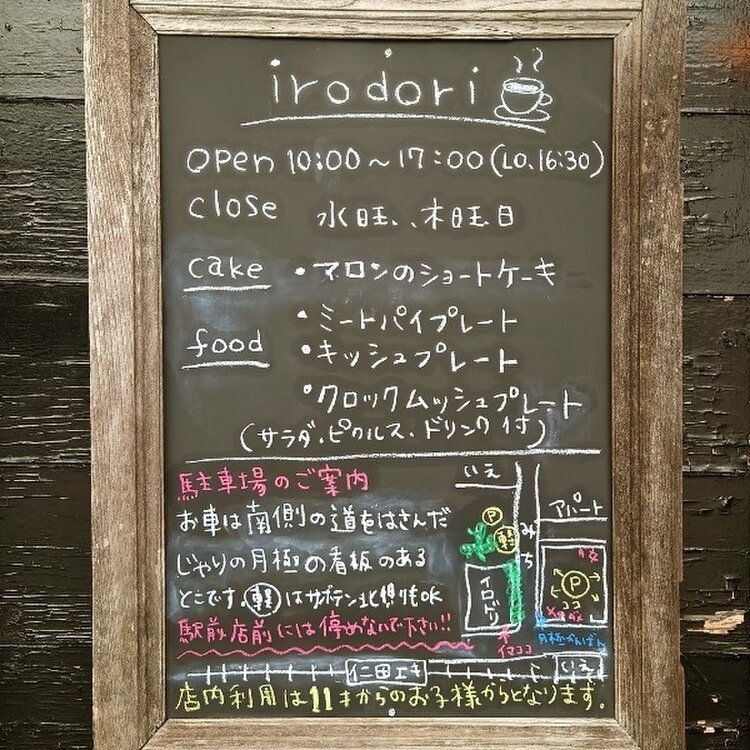 irodori
open 10:00~17:00(LO.16:30)
close 水曜、木曜日
cake ・マロンのショートケーキ
food ・ミートパイプレート
・キッシュプレート
・クロックムッシュプレート
(サラダ・ピクルス・ドリンク付)
駐車場のご案内
お車は南側の道をはさんだ
じゃりの月極の看板のある
とこです。軽はサボテン北側もOK
駅前店前には停めないで下さい!!
いえ
P
軽
みち
アパート
イロドリ
イマココ
P
ココ
月極かんばん
仁田エキ
いえ
店内利用は11才からのお子様からとなります。